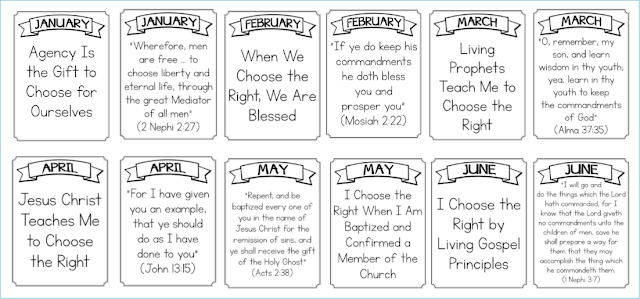 JANUARY
Agency Is
the Gift to
Choose for
Ourselves
JANUARY
"Wherefore, men
are free ... to
choose liberty and
eternal life, through
the great Mediator
of all men"
(2 Nephi 2:27)
FEBRUARY
When We
Choose the
Right, We Are
Blessed
FEBRUARY
"If ye do keep his
commandments
he doth bless
you and
prosper you"
(Mosiah 2:22)
MARCH
Living
Prophets
Teach Me to
Choose the
Right
MARCH
"O, remember, my
son, and learn
wisdom in thy youth;
yea, learn in thy
youth to keep
the commandments
of God"
(Alma 37:35)
APRIL
Jesus Christ
Teaches Me
to Choose
the Right
APRIL
"For I have given
you an example,
that ye should
do as I have
done to you"
(John 13:15)
MAY
"Repent, and be
baptized every one of
you in the name of
Jesus Christ for the
remission of sins, and
ye shall receive the gift
of the Holy Ghost"
(Acts 2:38)
MAY
I Choose the
Right When I Am
Baptized and
Confirmed a
Member of the
Church
JUNE
I Choose the
Right by
Living Gospel
Principles
JUNE
"I will go and
do the things which the Lord
hath commanded, for I
know that the Lord giveth
no commandments unto the
children of men, save he
shall prepare a way for
them that they may
accomplish the thing which
he commandeth them.
(1 Nephi 3:7)